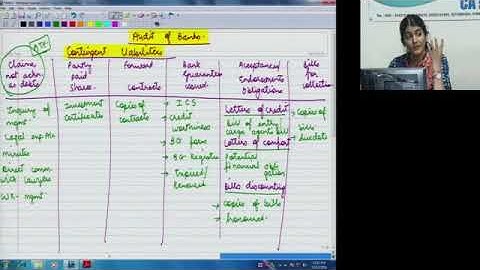 Audit of Banks
Contingent Liabilities
Claims not ackn as debts
Partly Paid Shares
Forward Contracts
Bank Guarantees issued
Acceptances/ Endorsements Obligations
Bills for collection
Inquiry of mgmt.
minutes
Direct comm. lawyers
WR - mgmt
Investment certificates
Copies of contracts
→ ICS
→ Credit worthiness
→ BG form
→ BG Register
→ Expired/ Renewed
Letters of credit
Bill of entry/ cargo agents bill
Letters of comfort
Potential financial obligation
Bills discounting
→ Copies of bills
→ honoured
→ Copies of bills
→ due date
CA S